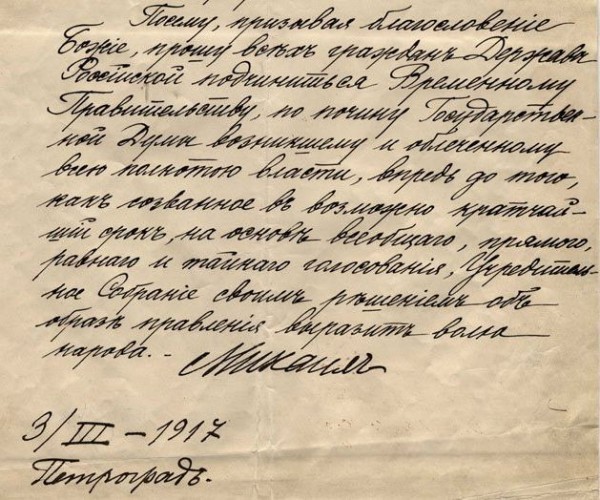 Посему, призывая благословеніе
Божіе, прошу всѣхъ гражданъ Державы
Россійской подчиниться Временному
Правительству, по почину Государствен-
ной Думы возникшему и облеченному
всею полнотою власти, впредь до того,
какъ созванное въ возможно кратчай-
шій срокъ, на основѣ всеобщаго, прямого,
равнаго и тайнаго голосованія, Учредитель-
ное Собраніе своимъ рѣшеніемъ объ
образѣ правленія выразитъ волю
народа. –
Михаилъ
3/III – 1917
Петроградъ.